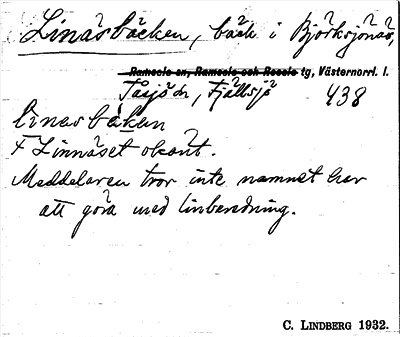 Linåsbäcken, bäck i Björksjönäs,
Ramsele sn, Ramsele och Resele tg, Västernorrl. l.
Tåsjö sn, Fjällsjö 438
linasbäkən
F Linnåset okänt.
Meddelaren tror inte namnet har
att göra med linberedning.
C. LINDBERG 1932.